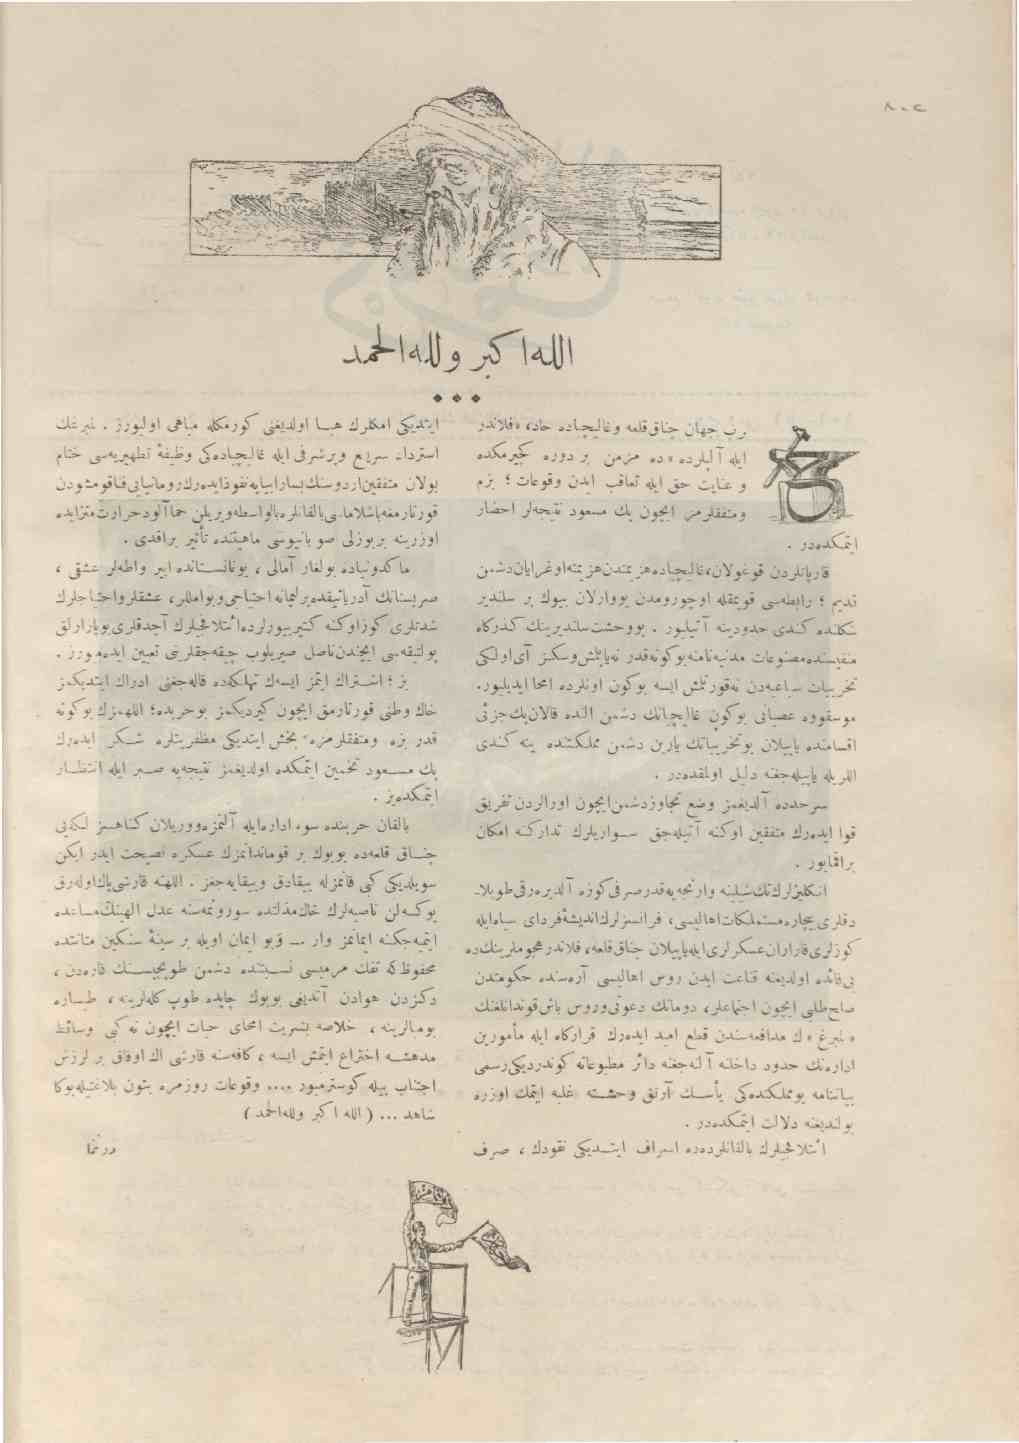 الله اكبر ولله الحمد
حرب جهان چناق قلعه وغاليچياده حاد، «فلاندر
ايله آلپلرده» ده مزمن بر دوره كچيرمكده
و عنايت حق ايله تعاقب ايدن وقوعات ؛ بزم
ومتفقلرمز ايچون پك مسعود نتيجه‌لر احضار
ايتمكده‌در .
قارپاتلردن قوغولان، غاليچياده هزيمتدن هزيمته اوغرايان دشمن
قديم ؛ رابطه‌سى قوپمقله اوچورومدن يووارلان بيوك بر سلندير
شكلنده كندى حدودينه آتيليور . بو وحشت سلنديرينك كذركاه
منفيسنده مصنوعات مدنيه نامنه بوكونه قدر نه ياپلمش وسكز آى اولكى
تخريبات سباعيه‌دن نه قورتلمش ايسه بوكون اونلرده امحا ايديليور.
موسقووه عصباتى بوكون غاليچيانك دشمن الند‌ه قالان پك جزئى
اقسامنده ياپيلان بو تخريباتك يارين دشمن مملكتنده ينه كندى
اللريله ياپيله‌جغنه دليل اولمقده‌در .
سرحدده آلديغمز وضع تجاوز دشمن ايچون اورالردن تفريق
قوا ايده‌رك متفقين اوكنه آتيله‌جق ســواريلرك تداركنه امكان
براقمايور .
انكليزلرك تك شيلينه وارنجه‌يه قدر صرفى كوزه آلديره‌رق طوپلا-
دقلرى بيچاره مستملكات اهاليسى، فرانسزلرك انديشهٔ فرداى سياه ايله
كوزلرى قاراران عسكرلرى ايله ياپيلان چناق قلعه، فلاندر هجوملرينك ده
بى فائده اولديغنه قناعت ايدن روس اهاليسى آره‌سنده حكومتدن
صلح طلبى ايچون اجتماعلر، دومانك دعوتى وروس باش قوماندانلغنك
«لمبرغ» ك مدافعه‌سندن قطع اميد ايده‌رك قراركاه ايله مأمورين
اداره‌نك حدود داخلنه آلنه‌جغنه دائر مطبوعاته كوندرديكى رسمى
بياننامه بو مملكتده‌كى يأسك آرتق وحشته غلبه ايتمك اوزره
بولنديغنه دلالت ايتمكده‌در .
ائتلافجيلرك بالقانلرده‌ده اسراف ايتــديكى نقودك ، صرف
ايتديكى امكلرك هبــا اولديغنى كورمكله مباهى اوليورز . لمبرغك
استرداد سريع وپرشرفى ايله غاليچياده‌كى وظيفهٔ تطهيريه‌سى ختام
بولان متفقين اردوسنك بسارابيايه نفوذ ايده‌رك رومانيايى فناقومشودن
قورتارمغه باشلاماسى بالقانلره بالواسطه ويريلن حما آلود حرارت متزايده
اوزرينه بر بوزلى صو بانيوسى ماهيتنده تأثير براقدى .
ماكدونياده بولغار آمالى ، يونانســتانده ايپر واطه‌لر عشقى ،
صربستانك آدرياتيقده بر ليمانه احتياجى و بو امللر، عشقلر واحتياجلرك
شدتلرى كوز اوكنه كتيريبورلرده ائتلافجيلرك آچدقلرى بو پازارلق
پولتيقه‌سى ايچندن ناصل صيريلوب چيقه‌جقلرينى تعيين ايده‌ميورز .
بز ؛ اشــتراك ايتمز ايسه‌ك تهلكه‌ده قاله‌جغنى ادراك ايتديكمز
خاك وطنى قورتارمق ايچون كيرديكمز بو حربده؛ اللهمزك بوكونه
قدر بزه ومتفقلرمزه بخش ايتديكى مظفريتلره شــكر ايده‌رك
پك مســعود تخمين ايتمكده اولديغمز نتيجه‌يه صبر ايله انتظــار
ايتمكده‌يز .
بالقان حربنده سوء اداره ايله آلنمزه وورولان كناهسز لكه‌يى
چنــاق قلعه‌ده يويوك بر قوماندانمزك عسكره نصيحت ايدر ايكن
سويلديكى كبى قانمزله ييقادق وييقايه‌جغز . اللهنه قارشى پاك اوله‌رق
يوكسه‌لن ناصيه‌لرك خاك مذلتده سورونمه‌سنه عدل الهينك مساعده
ايتميه‌جكنه ايمانمز وار ــ وبو ايمان اويله بر سينهٔ سنكين متانتده
محفوظ كه تفك مرميسى نسبتنده دشمن طوپجيســنك قاره‌دن ،
دكزدن هوادن آتديغى بويوك چاپده طوپ كله‌لرينه ، طيــاره
بومبالرينه ، خلاصه بشريت امحاى حيات ايچون نه كبى وسائط
مدهشــه اختراع ايتمش ايسه ، كافه‌سنه قارشى اك اوفاق بر لرزش
اجتناب بيله كوسترميور .... وقوعات روزمره بتون بلاغتيله بوكا
شاهد ... ( الله اكبر ولله الحمد )